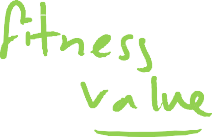 fitness
value